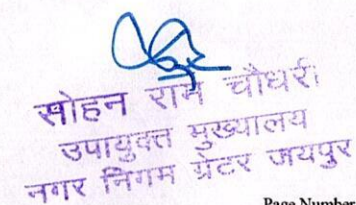 सोहन राम चौधरी
उपायुक्त मुख्यालय
नगर निगम ग्रेटर जयपुर
Page Number